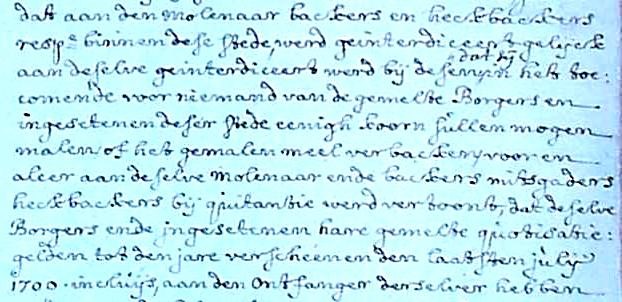 dat aan den molenaar backers en heckbackers
resp.e binnen dese stede, werd geinterdiceert gelijck
aan deselve geinterdiceert werd bij desen, dat sij in het toe:
comende voor niemand van de gemelte Borgers en
ingesetenen deser stede eenigh koorn sullen mogen
malen, of het gemalen meel verbacken, voor en
aleer aan deselve molenaar ende backers mitsgaders
heckbackers bij quitantie werd vertoont, dat deselve
Borgers ende jngesetenen hare gemelte quotisatie:
gelden tot den jare verscheenen den laatsten julij
1700. incluijs, aan den ontfanger derselver hebben